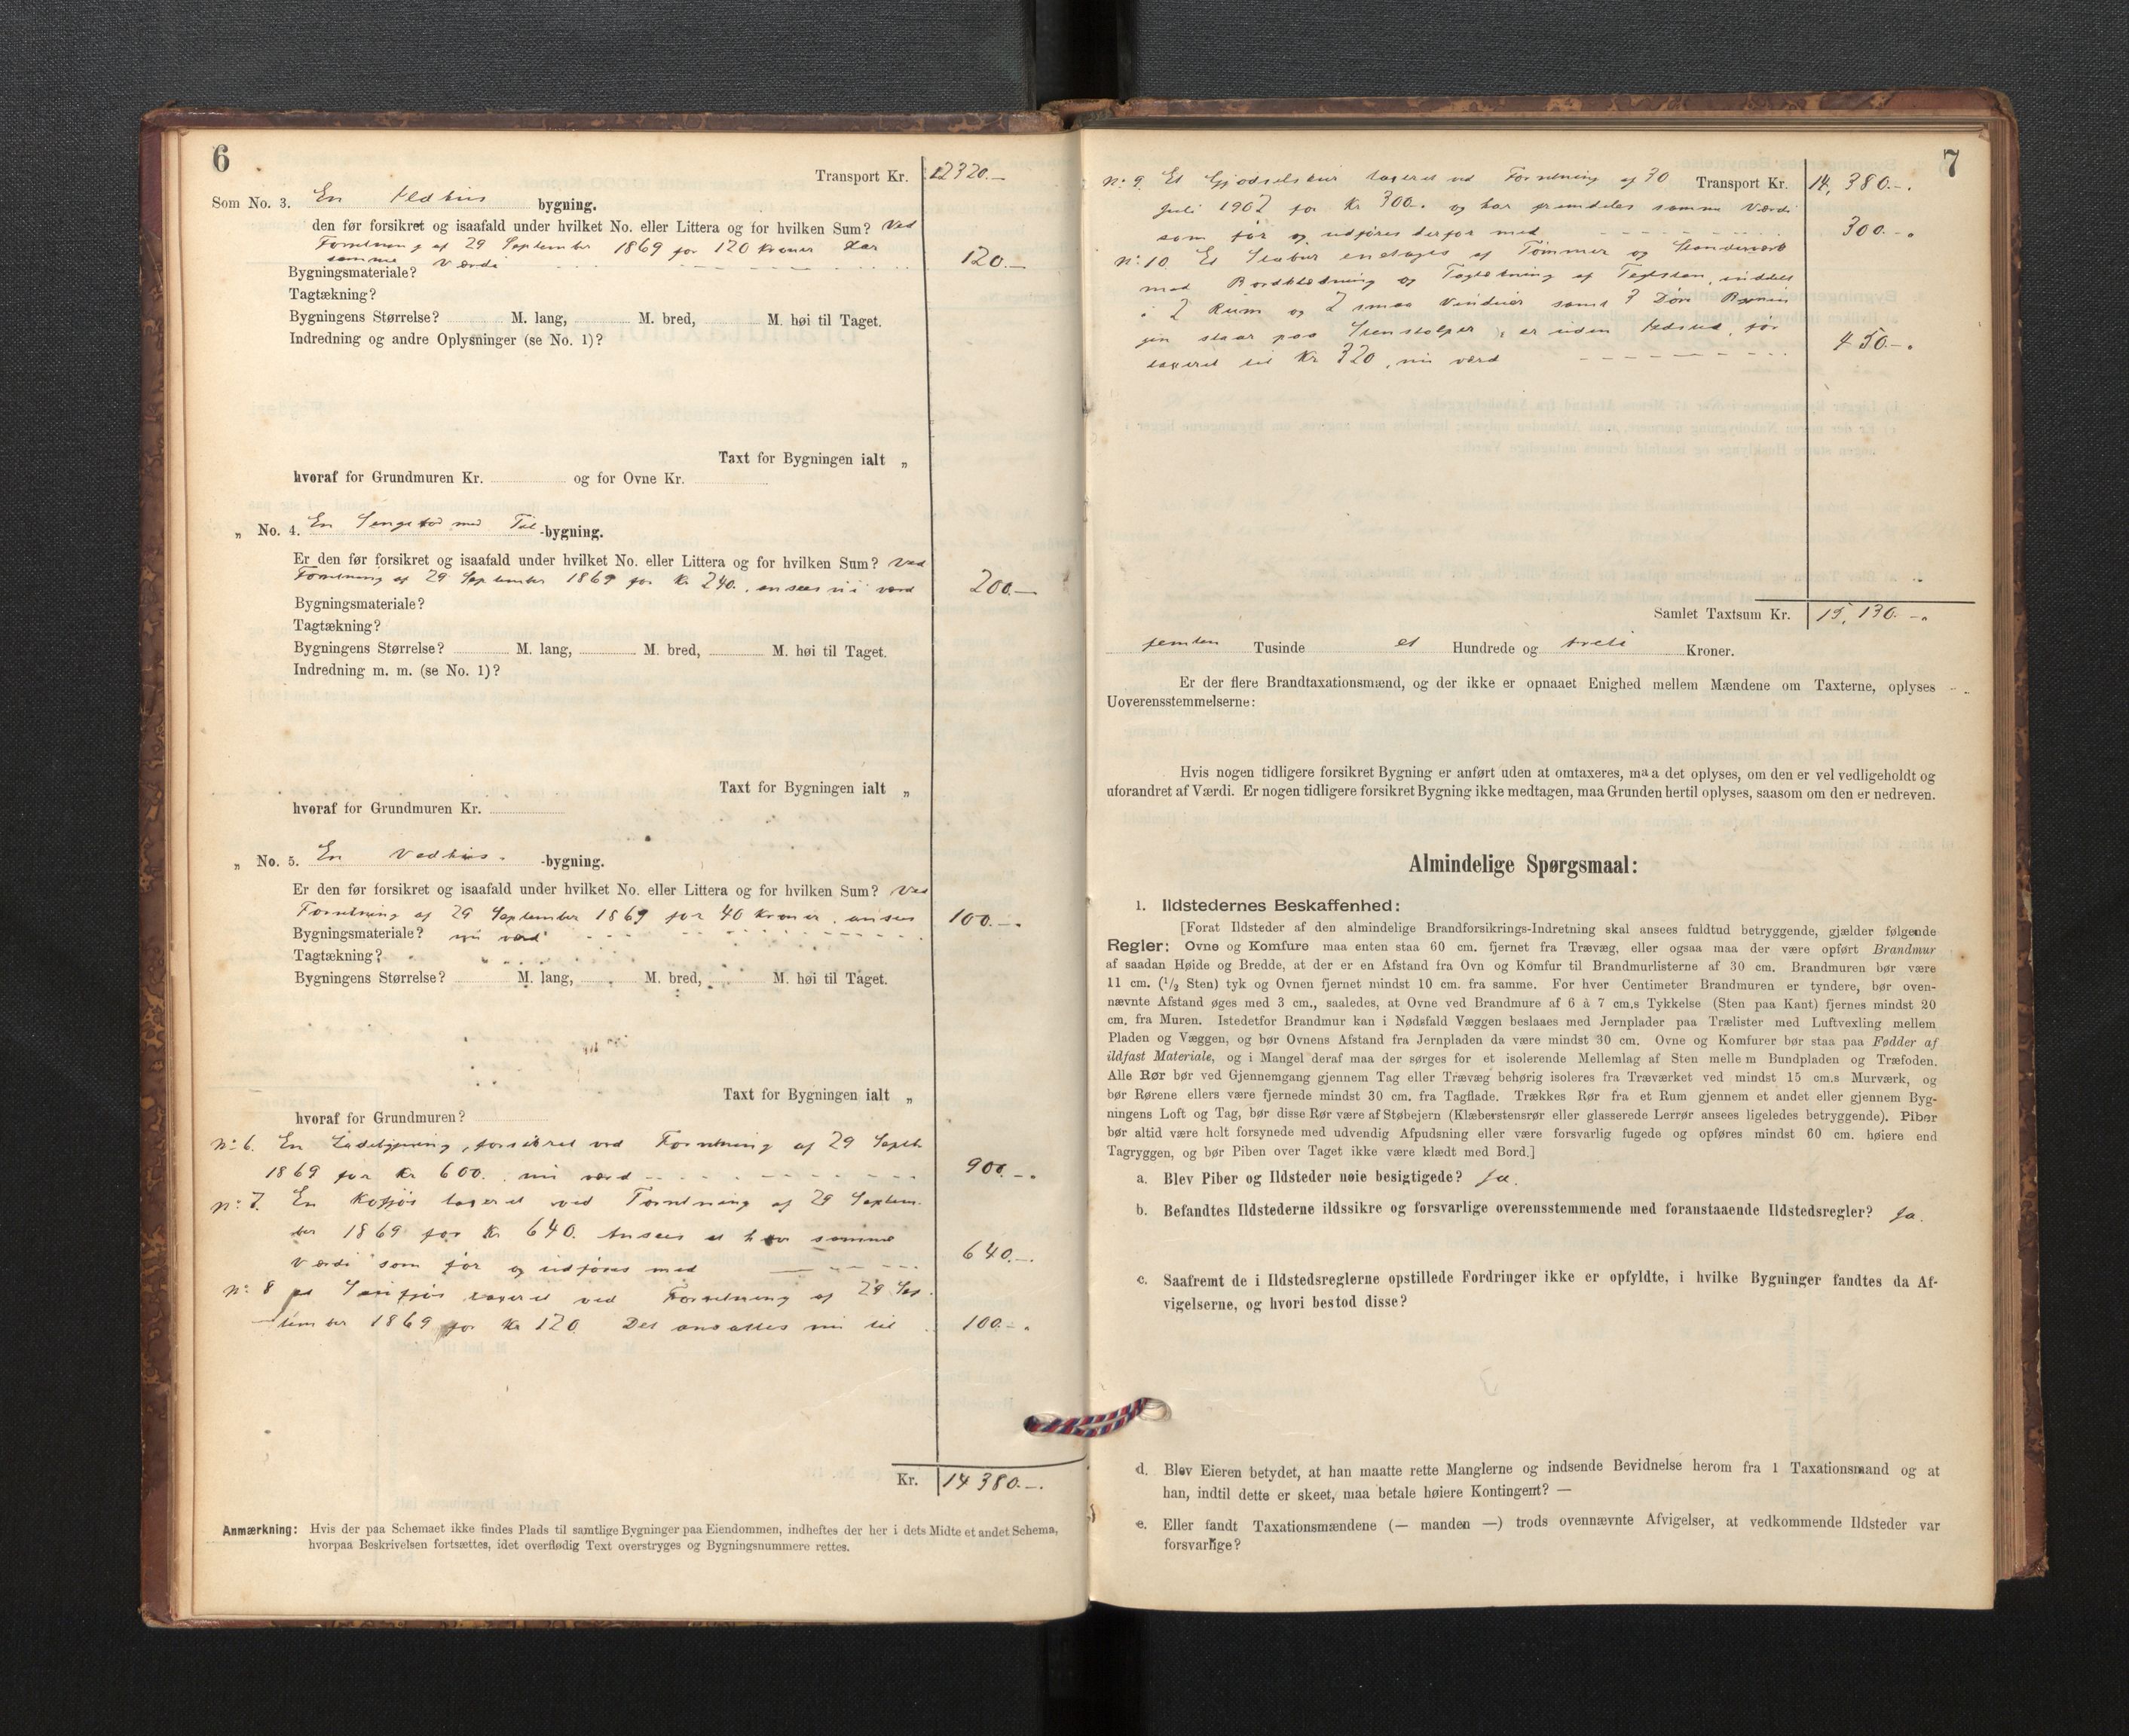 6
Transport Kr. 12320.—
Som No. 3. En Ildhus bygning.
den før forsikret og isaafald under hvilket No. eller Littera og for hvilken Sum? Ved
Forretning af 29 September 1869 for 120 Kroner har
samme Værdi 120.—
Bygningsmateriale?
Tagtækning?
Bygningens Størrelse? M. lang, M. bred, M. høi til Taget.
Indredning og andre Oplysninger (se No. 1)?
Taxt for Bygningen ialt „
hvoraf for Grundmuren Kr. og for Ovne Kr.
„ No. 4. En Sengebod med Til -bygning.
Er den før forsikret og isaafald under hvilket No. eller Littera og for hvilken Sum? Ved
Forretning af 29 September 1869 for Kr 240., ansees nu værd 200.—
Bygningsmateriale?
Tagtækning?
Bygningens Størrelse? M. lang, M. bred, M. høi til Taget.
Indredning m. m. (se No. 1)?
Taxt for Bygningen ialt „
hvoraf for Grundmuren Kr.
„ No. 5. En Vedhus. -bygning.
Er den før forsikret og isaafald under hvilket No. eller Littera og for hvilken Sum? Ved
Forretning af 29 September 1869 for 40 Kroner, ansees 100.—
Bygningsmateriale? nu værd
Tagtækning?
Bygningens Størrelse? M. lang, M. bred, M. høi til Taget.
Taxt for Bygningen ialt „
hvoraf for Grundmuren?
No: 6. En Ladebygning, forsikret ved Forretning af 29 Septb
1869 for Kr 600., nu værd 900.—
No: 7. En Kofjøs taxeret ved Forretning af 29 Septem-
ber 1869 for Kr 640. Ansees at have samme
Værdi som før og udføres med 640.—
No: 8 taxeret ved Forretning af 29 Sep-
tember 1869 for Kr 120. Det ansættes nu til 100.—
Kr. 14380.—
Anmærkning: Hvis der paa Schemaet ikke findes Plads til samtlige Bygninger paa Eiendommen, indheftes der her i dets Midte et andet Schema,
hvorpaa Beskrivelsen fortsættes, idet overflødig Text overstryges og Bygningsnummere rettes.
7
No: 9. Et Gjødselskur taxeret ved Forretning af 30 Transport Kr. 14,380.—
Juli 1902 for Kr 300. og har fremdeles samme Værdi
som før og udføres derfor med 300.—
No: 10. Et Stabur enetages af Tømmer og Standerværk
med Bordklædning og Tagtækning af Teglsten, inddelt
i 2 Rum og 2 smaa Vinduer samt 3 Døre Bygnin-
gen staar paa Stenstolper, er uden Ildsted, før
taxeret til Kr 320, nu værd 450.—
Samlet Taxtsum Kr. 15,130.—
femten Tusinde et Hundrede og treti Kroner.
Er der flere Brandtaxationsmænd, og der ikke er opnaaet Enighed mellem Mændene om Taxterne, oplyses
Uoverensstemmelserne:
Hvis nogen tidligere forsikret Bygning er anført uden at omtaxeres, maa det oplyses, om den er vel vedligeholdt og
uforandret af Værdi. Er nogen tidligere forsikret Bygning ikke medtagen, maa Grunden hertil oplyses, saasom om den er nedreven.
Almindelige Spørgsmaal:
1. Ildstedernes Beskaffenhed:
[Forat Ildsteder af den almindelige Brandforsikrings-Indretning skal ansees fuldtud betryggende, gjælder følgende
Regler: Ovne og Komfure maa enten staa 60 cm. fjernet fra Trævæg, eller ogsaa maa der være opført Brandmur
af saadan Høide og Bredde, at der er en Afstand fra Ovn og Komfur til Brandmurlisterne af 30 cm. Brandmuren bør være
11 cm. (½ Sten) tyk og Ovnen fjernet mindst 10 cm. fra samme. For hver Centimeter Brandmuren er tyndere, bør oven-
nævnte Afstand øges med 3 cm., saaledes, at Ovne ved Brandmure af 6 à 7 cm.s Tykkelse (Sten paa Kant) fjernes mindst 20
cm. fra Muren. Istedetfor Brandmur kan i Nødsfald Væggen beslaaes med Jernplader paa Trælister med Luftvexling mellem
Pladen og Væggen, og bør Ovnens Afstand fra Jernpladen da være mindst 30 cm. Ovne og Komfurer bør staa paa Fødder af
ildfast Materiale, og i Mangel deraf maa der sørges for et isolerende Mellemlag af Sten mellem Bundpladen og Træfoden.
Alle Rør bør ved Gjennemgang gjennem Tag eller Trævæg behørig isoleres fra Træværket ved mindst 15 cm.s Murværk, og
bør Rørene ellers være fjernede mindst 30 cm. fra Tagflade. Trækkes Rør fra et Rum gjennem et andet eller gjennem Byg-
ningens Loft og Tag, bør disse Rør være af Støbejern (Klæberstensrør eller glasserede Lerrør ansees ligeledes betryggende). Piber
bør altid være helt forsynede med udvendig Afpudsning eller være forsvarlig fugede og opføres mindst 60 cm. høiere end
Tagryggen, og bør Piben over Taget ikke være klædt med Bord.]
a. Blev Piber og Ildsteder nøie besigtigede? Ja.
b. Befandtes Ildstederne ildssikre og forsvarlige overensstemmende med foranstaaende Ildstedsregler? Ja.
c. Saafremt de i Ildstedsreglerne opstillede Fordringer ikke er opfyldte, i hvilke Bygninger fandtes da Af-
vigelserne, og hvori bestod disse?
d. Blev Eieren betydet, at han maatte rette Manglerne og indsende Bevidnelse herom fra 1 Taxationsmand og at
han, indtil dette er skeet, maa betale høiere Kontingent? —
e. Eller fandt Taxationsmændene (— manden —) trods ovennævnte Afvigelser, at vedkommende Ildsteder var
forsvarlige?